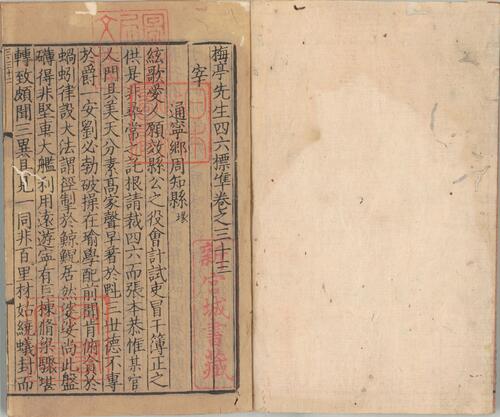 梅亭先生四六標準卷之三十三
宰
通寧鄉周知縣 㻏
絃歌愛人願效縣公之役會計試吏冒干簿正之
供是非尋常之託根請裁四六而張本恭惟某官
人門具美天分素高家聲早著於魁三世德不專
於爵一安劉必勃破操在瑜學配前聞肯俯貪於
蝸蚓律設大法謂踁制於鯨鯢居然婆娑尚此盤
礴得非堅車大艦利用遠遊寧有巨棟脩梁驟堪
轉致頗聞三異且見一同非百里材姑繞蟻封而
新宮城書藏